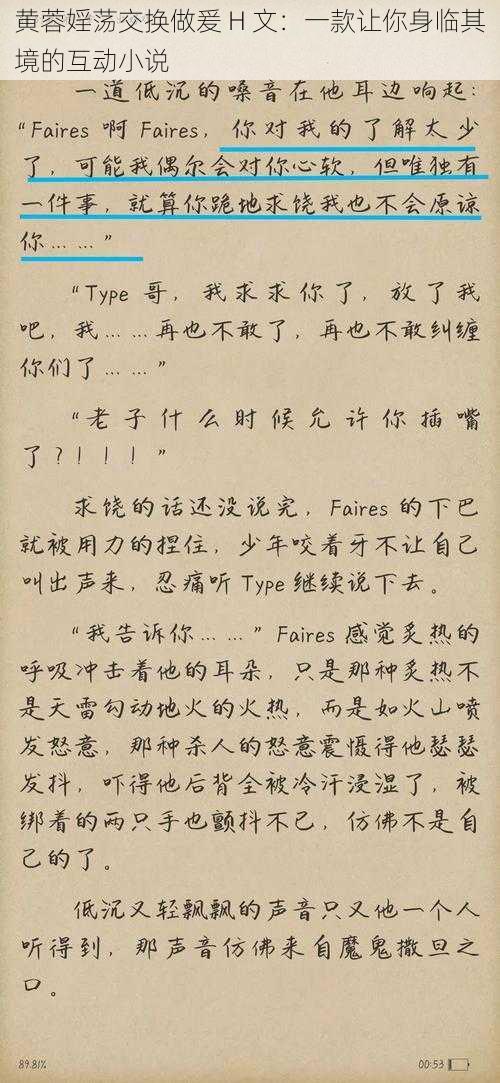 黄蓉婬荡交换做爰 H 文：一款让你身临其
境的互动小说
一道低沉的嗓音在他耳边响起：
“Faires 啊 Faires，你对我的了解太少
了，可能我偶尔会对你心软，但唯独有
一件事，就算你跪地求饶我也不会原谅
你……”
“Type 哥，我求求你了，放了我
吧，我……再也不敢了，再也不敢纠缠
你们了……”
“老子什么时候允许你插嘴
了？！！！”
求饶的话还没说完，Faires 的下巴
就被用力的捏住，少年咬着牙不让自己
叫出声来，忍痛听 Type 继续说下去。
“我告诉你……”Faires 感觉炙热的
呼吸冲击着他的耳朵，只是那种炙热不
是天雷勾动地火的火热，而是如火山喷
发怒意，那种杀人的怒意震慑得他瑟瑟
发抖，吓得他后背全被冷汗浸湿了，被
绑着的两只手也颤抖不已，仿佛不是自
己的了。
低沉又轻飘飘的声音只又他一个人
听得到，那声音仿佛来自魔鬼撒旦之
口。
89.81%
00:53